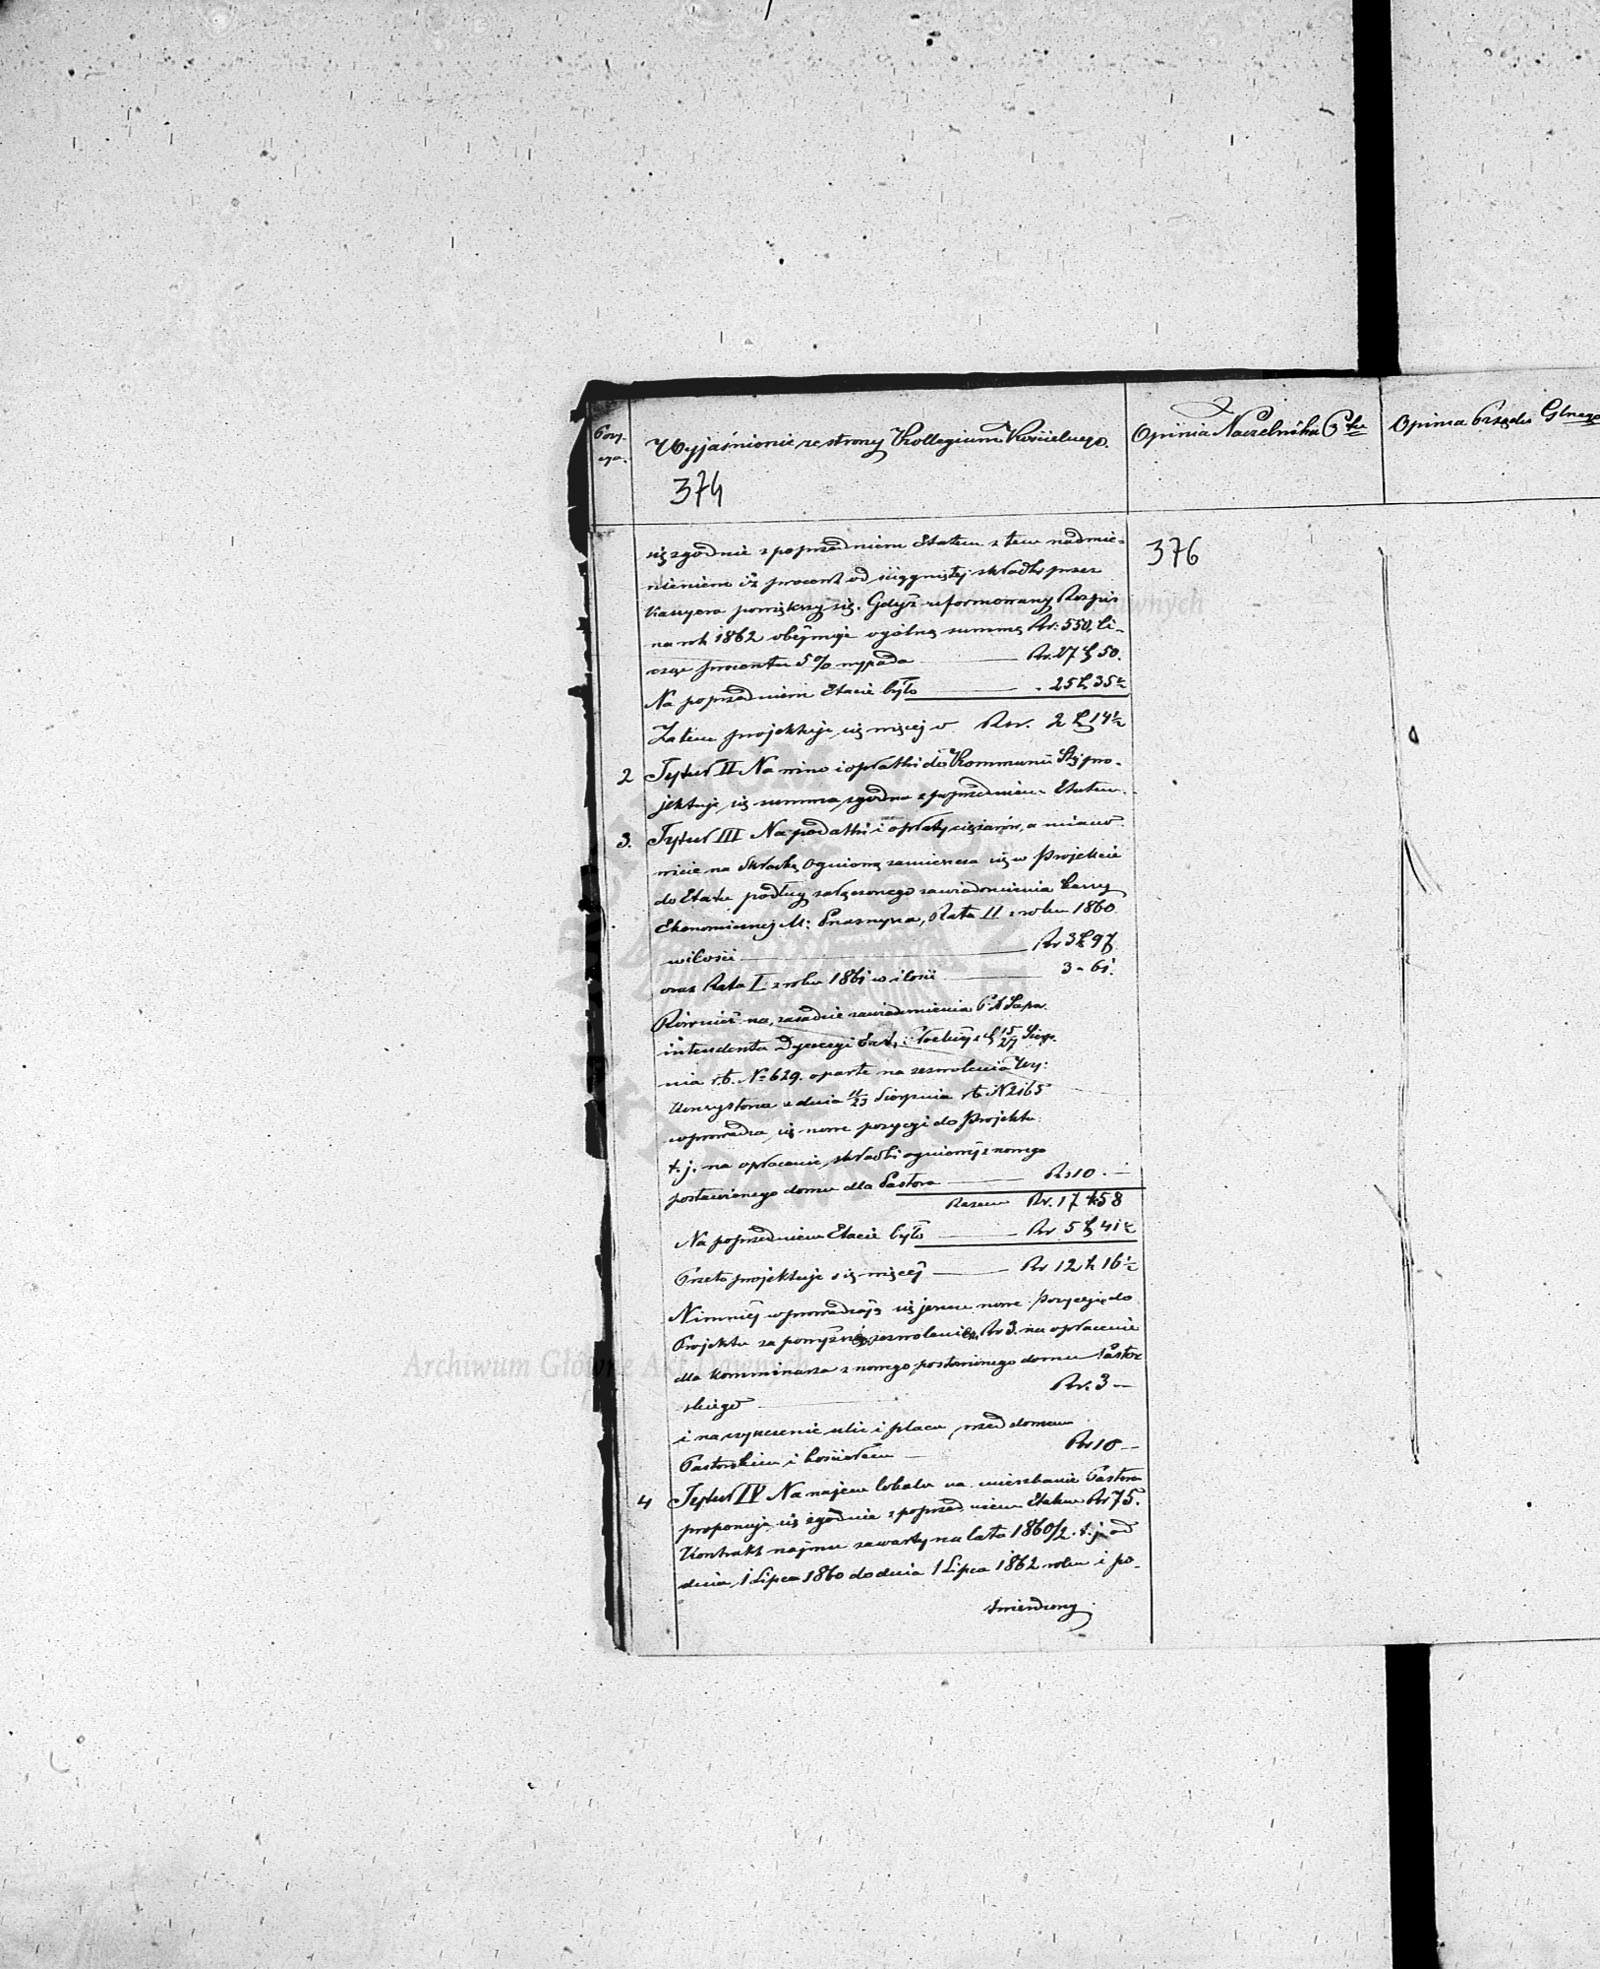 Pozy-
cya.
Wyjaśnienie ze strony Kollegium Kościelnego.
374
Opinia Naczelnika Ptu
Opinia Urzędu Glnego
376
się zgodnie z poprzedniem Etatem z tem nadmie-
nieniem iż procent od ściągniętej składki przez
Kassyera powiększy się. Gdyż reformowany Rozpis
na rok 1862 obejmuje ogólną summę Rs: 550, li-
cząc procentu 5% wypada Rs. 27 k 50.
Na poprzedniem Etacie było 25 k 35½
Zatem projektuje się więcej o Rsr. 2 k 14½
2 Tytuł II Na wino i opłatki do Kommunii Stej pro-
jektuje się summa zgodna z poprzedniem Etatem.
3. Tytuł III Na podatki i opłaty ciężarów, a miano-
wicie na Składkę Ogniową zamieszcza się w Projekcie
do Etatu podług załączonego zawiadomienia Kassy
Ekonomicznej M: Prasnysza, Rata II z roku 1860
w ilości Rs 3 k 97
oraz Rata I z roku 1861 w ilości 3 - 61.
Również na zasadzie zawiadomienia
intendenta Dyecezyi 15/27 Sierp-
nia r.b. No 629. oparte na zezwolenia Wy:
Konsystorza z dnia 11/23 Sierpnia rb N 2165
wprowadza się nowe pozycyi do Projektu
t. j. na opłacenie składki ogniowej z nowego
postawionego domu dla Pastora Rs 10. -
Razem Rs. 17 k 58
Na poprzedniem Etacie było Rs 5 k 41½
Przeto projektuje się więcej Rs 12 k 16½
Niemniej wprowadzają się jeszcze nowe Pozycyje do
Projektu za zezwoleniem, Rs 3. na opłacenie
dla kominiarza z nowego postawionego domu Pastor-
skiego Rs. 3 -
i na czyszczenie ulic i placu przed domem
Pastorskiem i kościołem Rs 10 -
4 Tytuł IV Na najem lokalu na mieszkanie Pastora
proponuje się zgodnie z poprzedniem Etatem Rs 75.
Kontrakt najmu zawarty na lata 1860/2. t. j. od
dnia 1 Lipca 1860 do dnia 1 Lipca 1862 roku i po-
twierdzony
Archiwum Główne Akt Dawnych